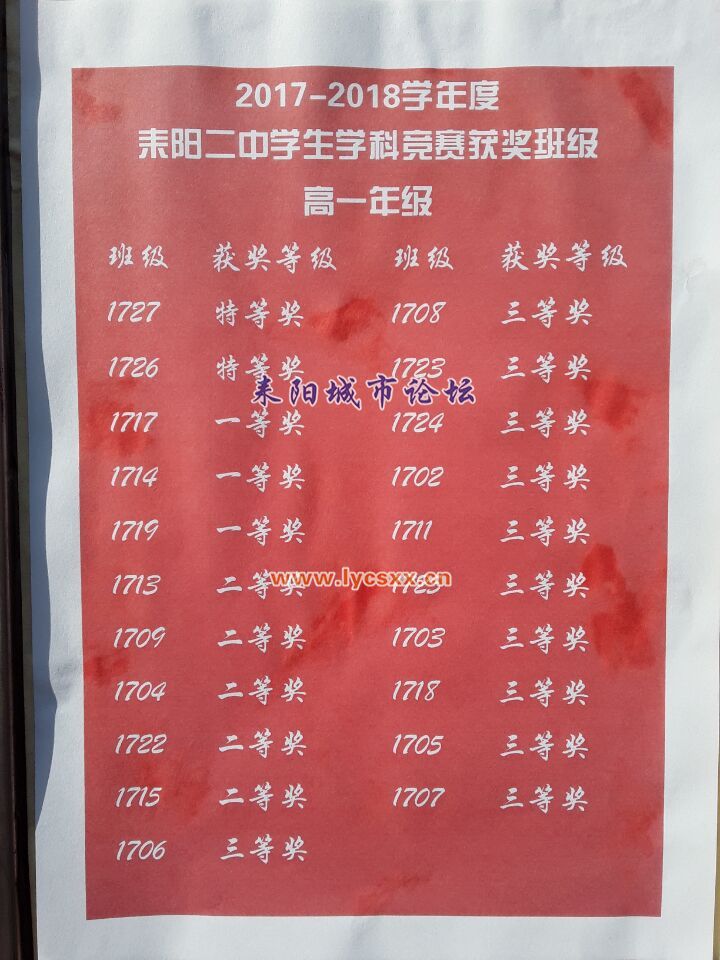 2017-2018学年度
耒阳二中学生学科竞赛获奖班级
高一年级
班级 获奖等级 班级 获奖等级
1727 特等奖 1708 三等奖
1726 特等奖 1723 三等奖
耒阳城市论坛
1717 一等奖 1724 三等奖
1714 一等奖 1702 三等奖
1719 一等奖 1711 三等奖
www.lycsxx.cn
1713 二等奖 三等奖
1709 二等奖 1703 三等奖
1704 二等奖 1718 三等奖
1722 二等奖 1705 三等奖
1715 二等奖 1707 三等奖
1706 三等奖